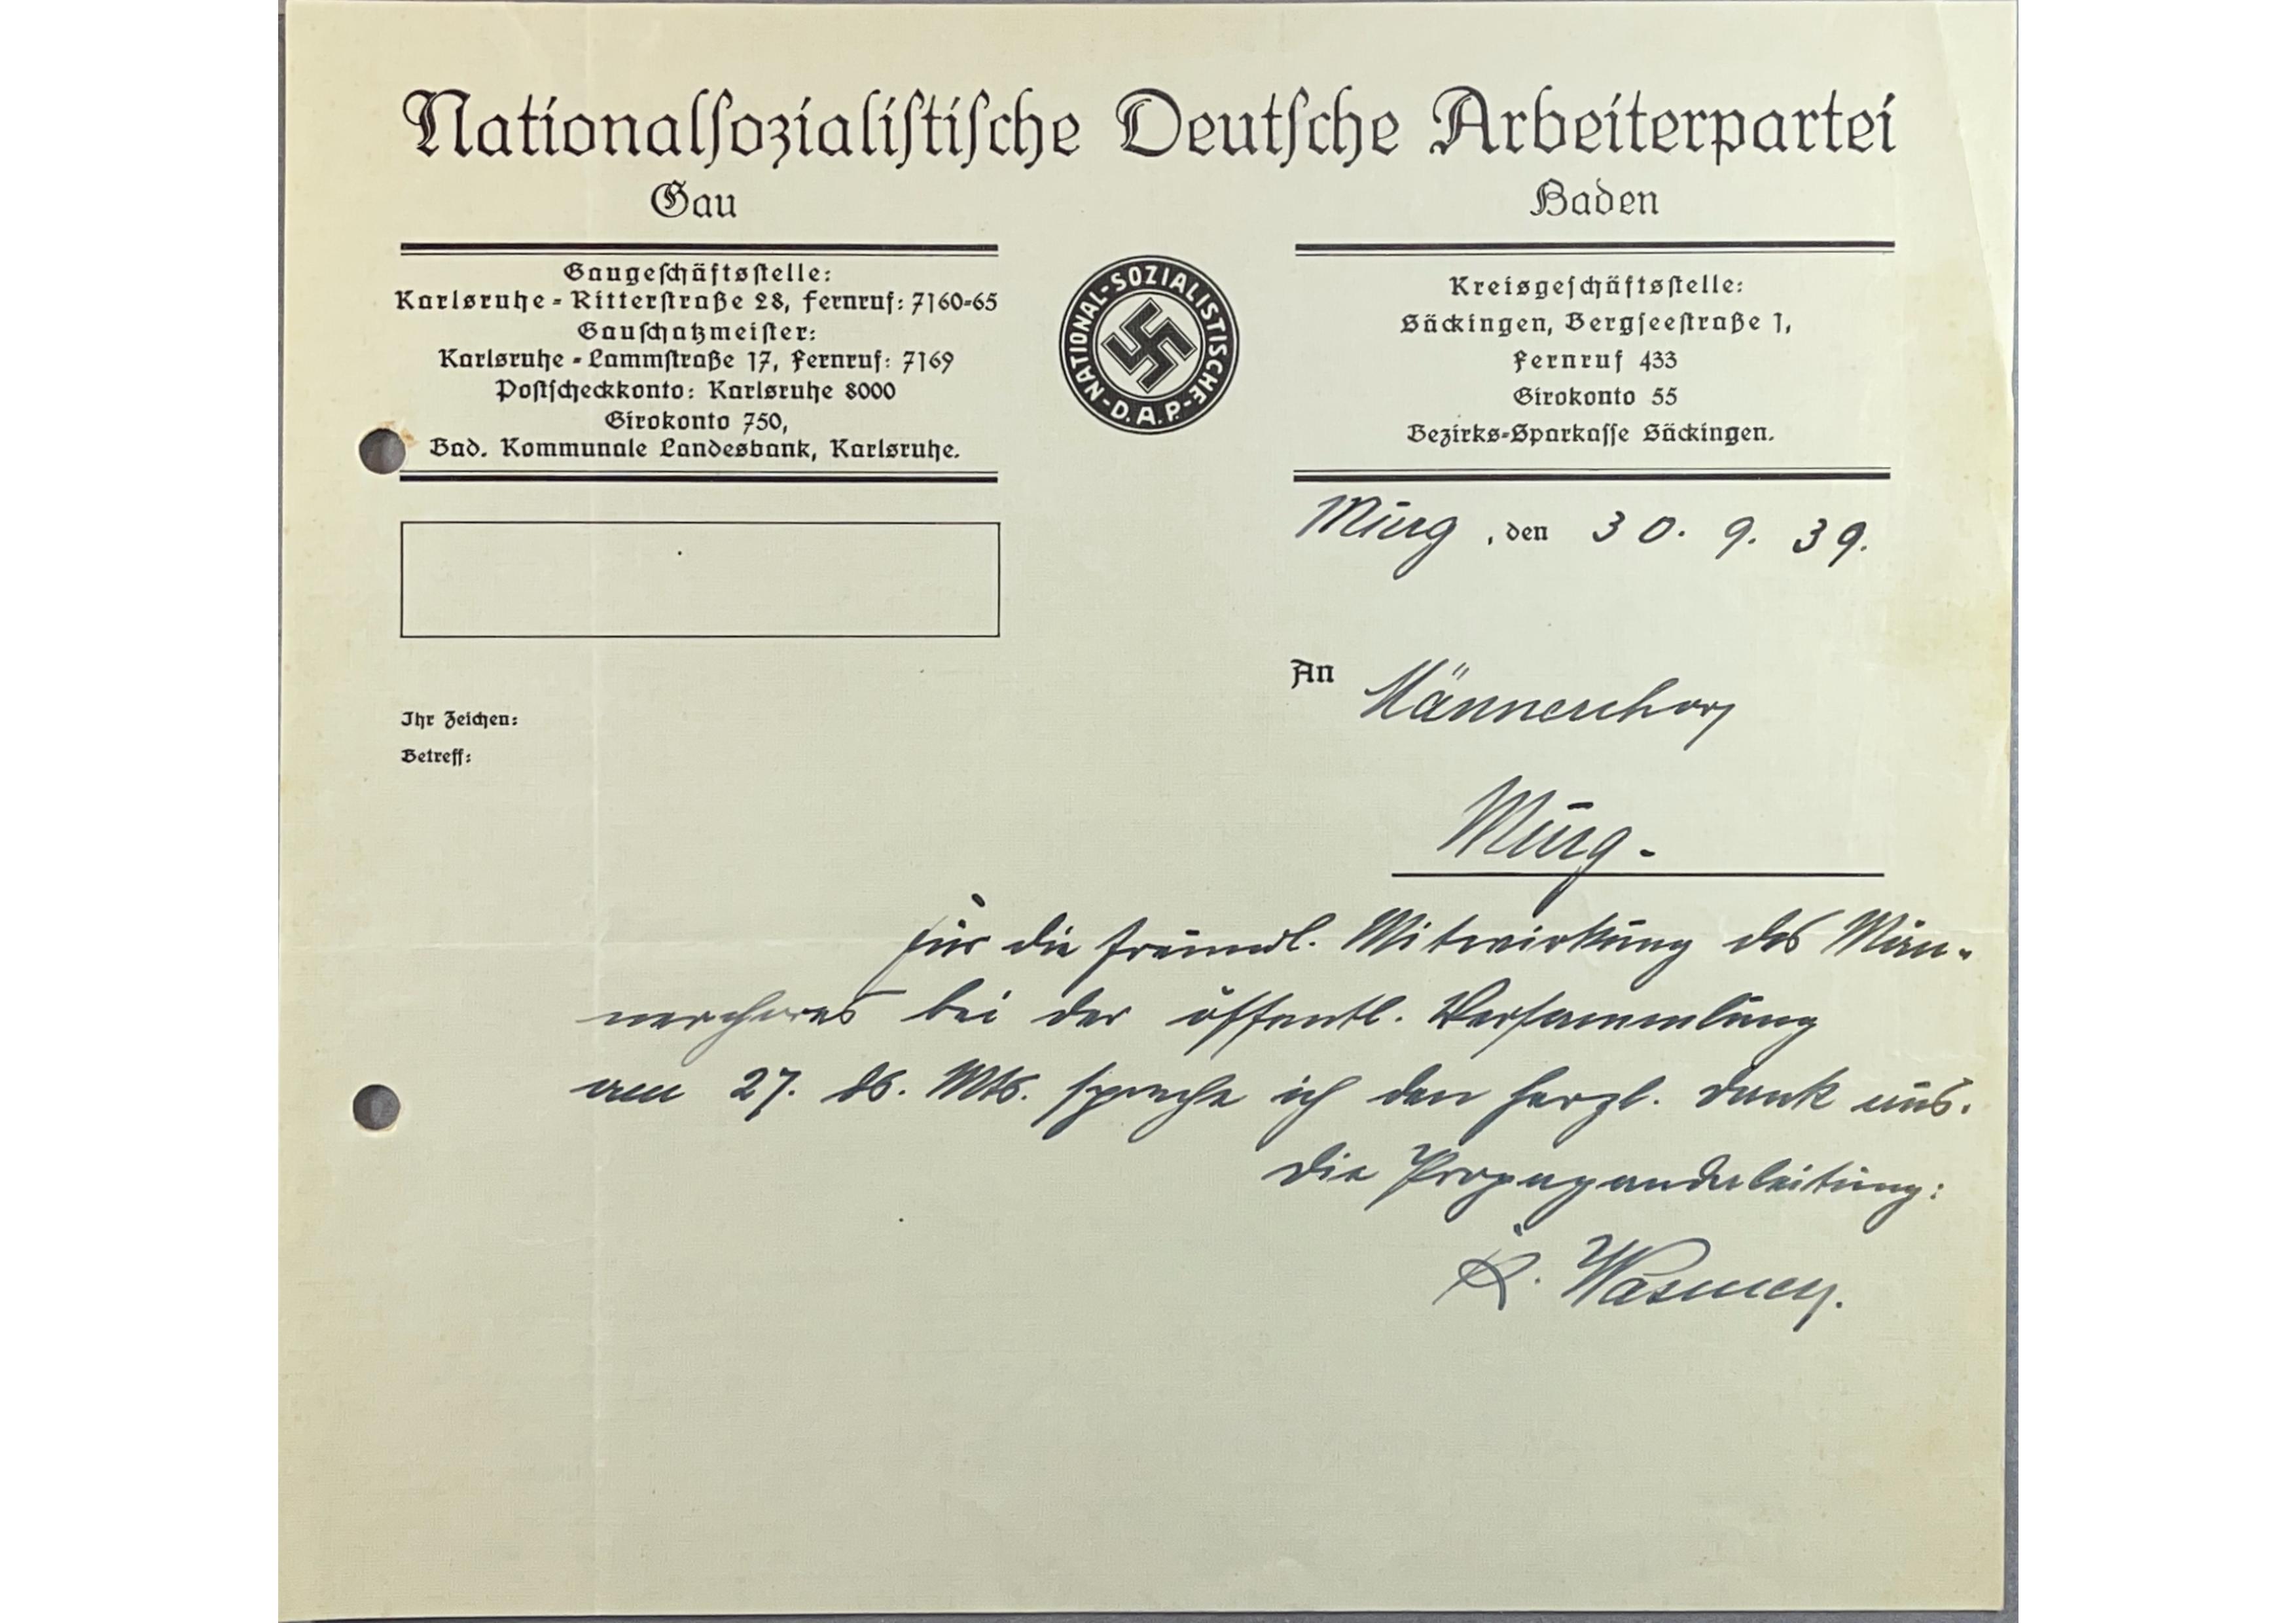 Nationalsozialistische Deutsche Arbeiterpartei
Gau Baden
Gaugeschäftsstelle:
Karlsruhe - Ritterstraße 28, Fernruf: 7160-65
Gauschatzmeister:
Karlsruhe - Lammstraße 17, Fernruf: 7169
Postscheckkonto: Karlsruhe 8000
Girokonto 750,
Bad. Kommunale Landesbank, Karlsruhe.
NATIONAL-SOZIALISTISCHE-D.A.P.-
Kreisgeschäftsstelle:
Säckingen, Bergseestraße 1,
Fernruf 433
Girokonto 55
Bezirks-Sparkasse Säckingen.
Murg, den 30. 9. 39.
An Männerchor
Murg.
Ihr Zeichen:
Betreff:
Für die freundl. Mitwirkung des Män-
nerchores bei der öffentl. Versammlung
am 27. ds. Mts. spreche ich den herzl. Dank aus.
Die Propagandaleitung:
K. Wasmer.